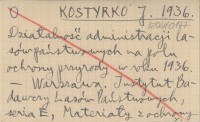 O KOSTYRKO J. 1936.
Działalność administracji la-
sów państwowych na polu
ochrony przyrody w roku 1936.
— Warszawa, Instytut Ba-
dawczy Lasów Państwowych,
seria E, Materiały z ochrony